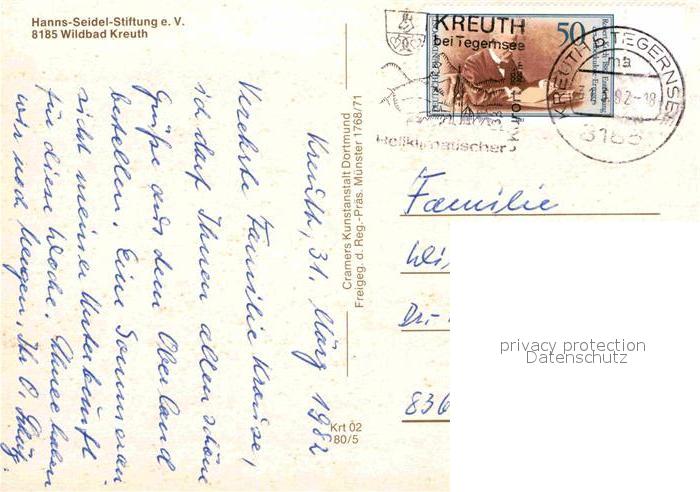 Hanns-Seidel-Stiftung e. V.
8185 Wildbad Kreuth
KREUTH
bei Tegernsee
Heilklimatischer
50
KREUTH b TEGERNSEE
na
82-18
8185
Cramers Kunstanstalt Dortmund
Freigeg. d. Reg.-Präs. Münster 1768/71
Krt Ö2
80/5
Kreuth, 31. März 1982
Verehrte Familie Krause,
ich darf Ihnen allen schöne
Grüße aus dem Oberland
bestellen. Eine Sommerein
sicht meiner Unterkunft
für diese Woche. Schnee haben
wir noch Ihr O.
Familie
836
privacy protection
Datenschutz